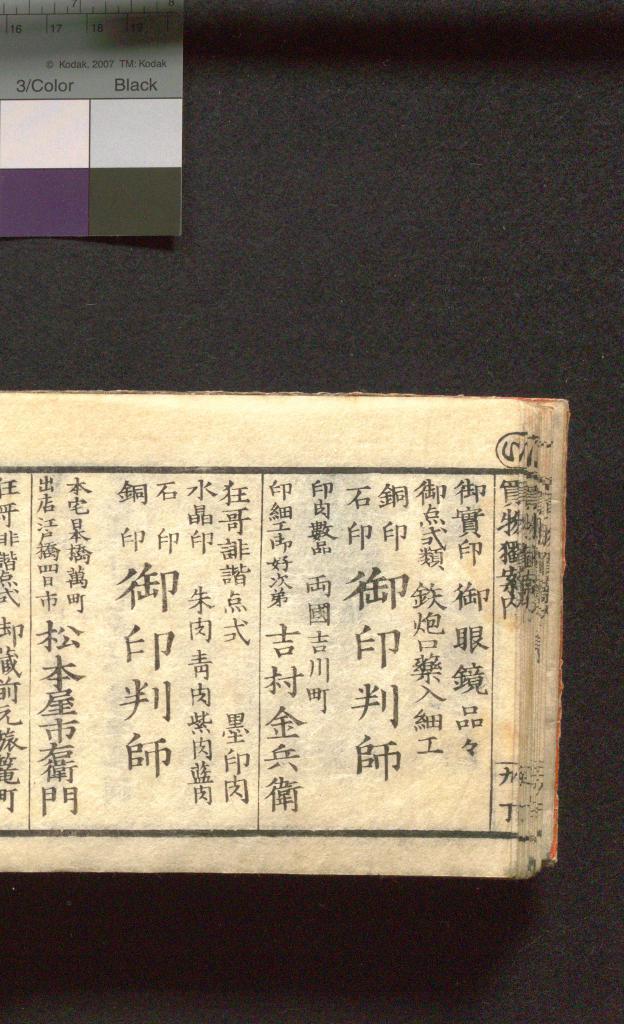 7 8
16 17 18 19
© Kodak, 2007 TM: Kodak
3/Color Black
買物獨案内
丁
御實印 御眼鏡品々
御点式類 鉄炮口藥入細工
銅印
石印
御印判師
印肉數品 両國吉川町
印細工御好次第 吉村金兵衛
狂哥誹諧点式 墨印肉
水晶印 朱肉青肉紫肉藍肉
石印
銅印
御印判師
本宅日本橋萬町
出店江戸橋四日市
松本屋市右衛門
狂哥誹諧点式 御蔵前元旅篭町